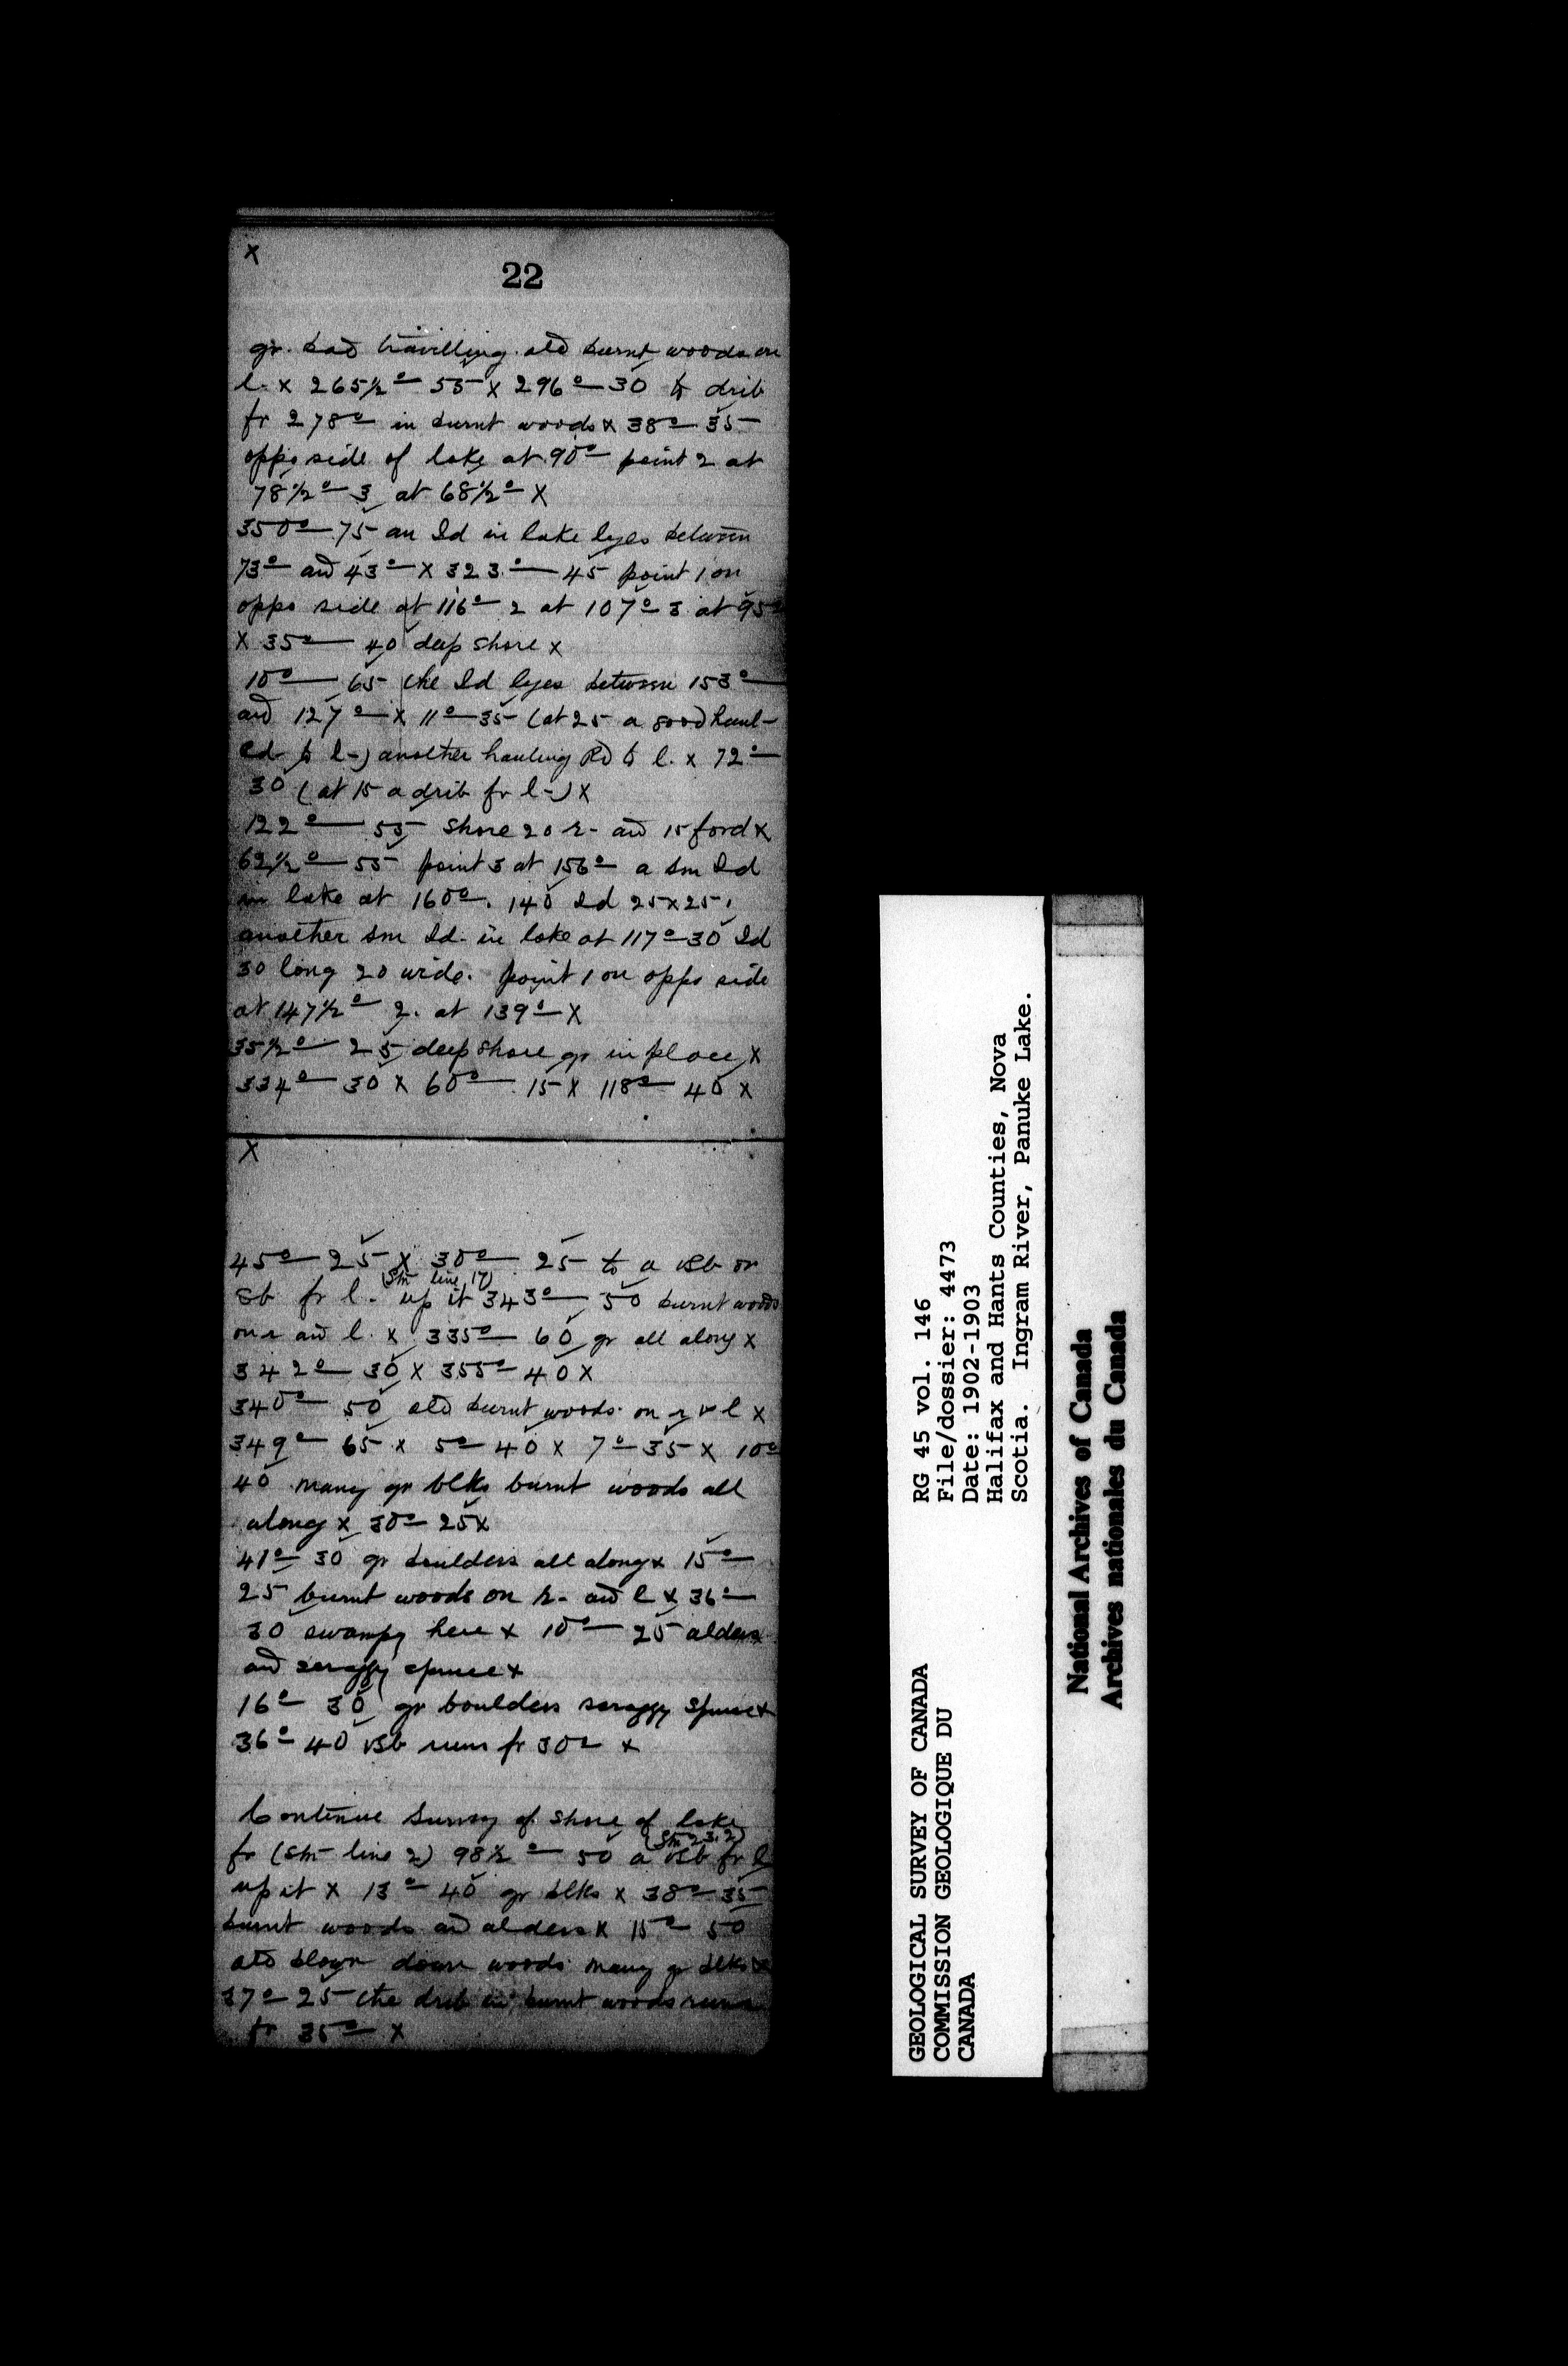 X
22
gr. bad travelling old burnt woods on
l. x 265½° — 55 x 296° — 30 to drib
fr 278° — in burnt woods x 38° — 35 —
oppo side of lake at 90° — point 2 at
78½° — 3 at 68½° — X
350° — 75 — an Id in lake lyes between
73° — and 43° — X 323° — 45 point 1 on
oppo side at 116° — 2 at 107° — 3 at 95°
X 35° — 40 deep shore x
10° — 65 the Id lyes between 153° —
and 127° — x 11° — 35 — (at 25 a good haul-
to l-) another hauling Rd to l. x 72° —
30 (at 15 a drib fr l-) X
122° — 55 — shore 20 r- and 15 ford x
62½° — 55 — point 3 at 156° — a sm Id
in lake at 160° — 140 Id 25x25,
another sm Id. in lake at 117° — 30 Id
30 long 20 wide. point 1 on oppo side
at 147½° — 2. at 139° — X
35½° — 25 deep shore gr in place X
334° — 30 X 60° — 15 X 118° — 40 X
X
45° — 25 — X 30° — 25 — to a vSb or
(Stn line 17)
Sb fr l. up it 343° — 50 burnt woods
on r and l. x 335° — 60 gr all along x
342° — 30 X 355° — 40 X
340° — 50 old burnt woods on r & l x
349° — 65 x 5° — 40 x 7° — 35 x 10°
40 many gr blks burnt woods all
along x 30° — 25 x
41° — 30 gr boulders all along x 15° —
25 burnt woods on r- and l x 36° —
30 swampy here x 10° — 25 alders
and scraggy spruce x
16° — 30 gr boulders scraggy spruce x
36° — 40 vSb runs fr 30° — x
Continue Survey of shore of lake
(Stn 23.2)
fr (Stn line 2) 98½° — 50 a vSb fr l
up it x 13° — 40 gr blks x 38° — 35
burnt woods and alders x 15° — 50
old blown down woods many gr blks x
37° — 25 — the drib in burnt woods runs
fr 35° — X
GEOLOGICAL SURVEY OF CANADA
COMMISSION GEOLOGIQUE DU
CANADA
RG 45 vol. 146
File/dossier: 4473
Date: 1902-1903
Halifax and Hants Counties, Nova
Scotia. Ingram River, Panuke Lake.
National Archives of Canada
Archives nationales du Canada